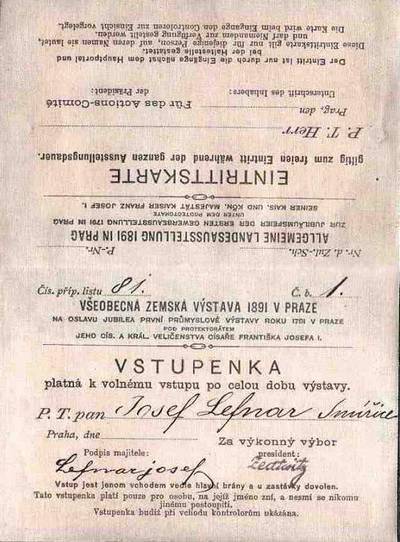 Čís. příp. listu 81. Č. b. 1.
VŠEOBECNÁ ZEMSKÁ VÝSTAVA 1891 V PRAZE
NA OSLAVU JUBILEA PRVNÍ PRŮMYSLOVÉ VÝSTAVY ROKU 1791 V PRAZE
POD PROTEKTORÁTEM
JEHO CÍS. A KRÁL. VELIČENSTVA CÍSAŘE FRANTIŠKA JOSEFA I.
VSTUPENKA
platná k volnému vstupu po celou dobu výstavy.
P. T. pan Josef Lefnar Smiřice
Praha, dne
Za výkonný výbor
Podpis majitele: president:
Lefnar josef Zedtwitz
Vstup jest jenom vchodem vedle hlavní brány a u zastávky dovolen.
Tato vstupenka platí pouze pro osobu, na jejíž jméno zní, a nesmí se nikomu
jinému postoupiti.
Vstupenka budiž při vchodu kontrolorům ukázána.
Nr. d. Zul.-Sch. P.-Nr.
ALLGEMEINE LANDESAUSSTELLUNG 1891 IN PRAG
ZUR JUBILÄUMSFEIER DER ERSTEN GEWERBEAUSSTELLUNG IN 1791 IN PRAG
UNTER DEM PROTECTORATE
SEINER KAIS. UND KÖN. MAJESTÄT KAISER FRANZ JOSEF I.
EINTRITTSKARTE
giltig zum freien Eintritt während der ganzen Ausstellungsdauer.
P. T. Herr
Prag, den
Für das Actions-Comité
Unterschrift des Inhabers: der Präsident:
Der Eintritt ist nur durch die Eingänge nächst dem Hauptportal und
bei der Haltestelle gestattet.
Diese Eintrittskarte gilt nur für diejenige Person, auf deren Namen sie lautet,
und darf Niemandem zur Verfügung gestellt werden.
Die Karte wird beim Eingange den Controloren zur Einsicht vorgelegt.